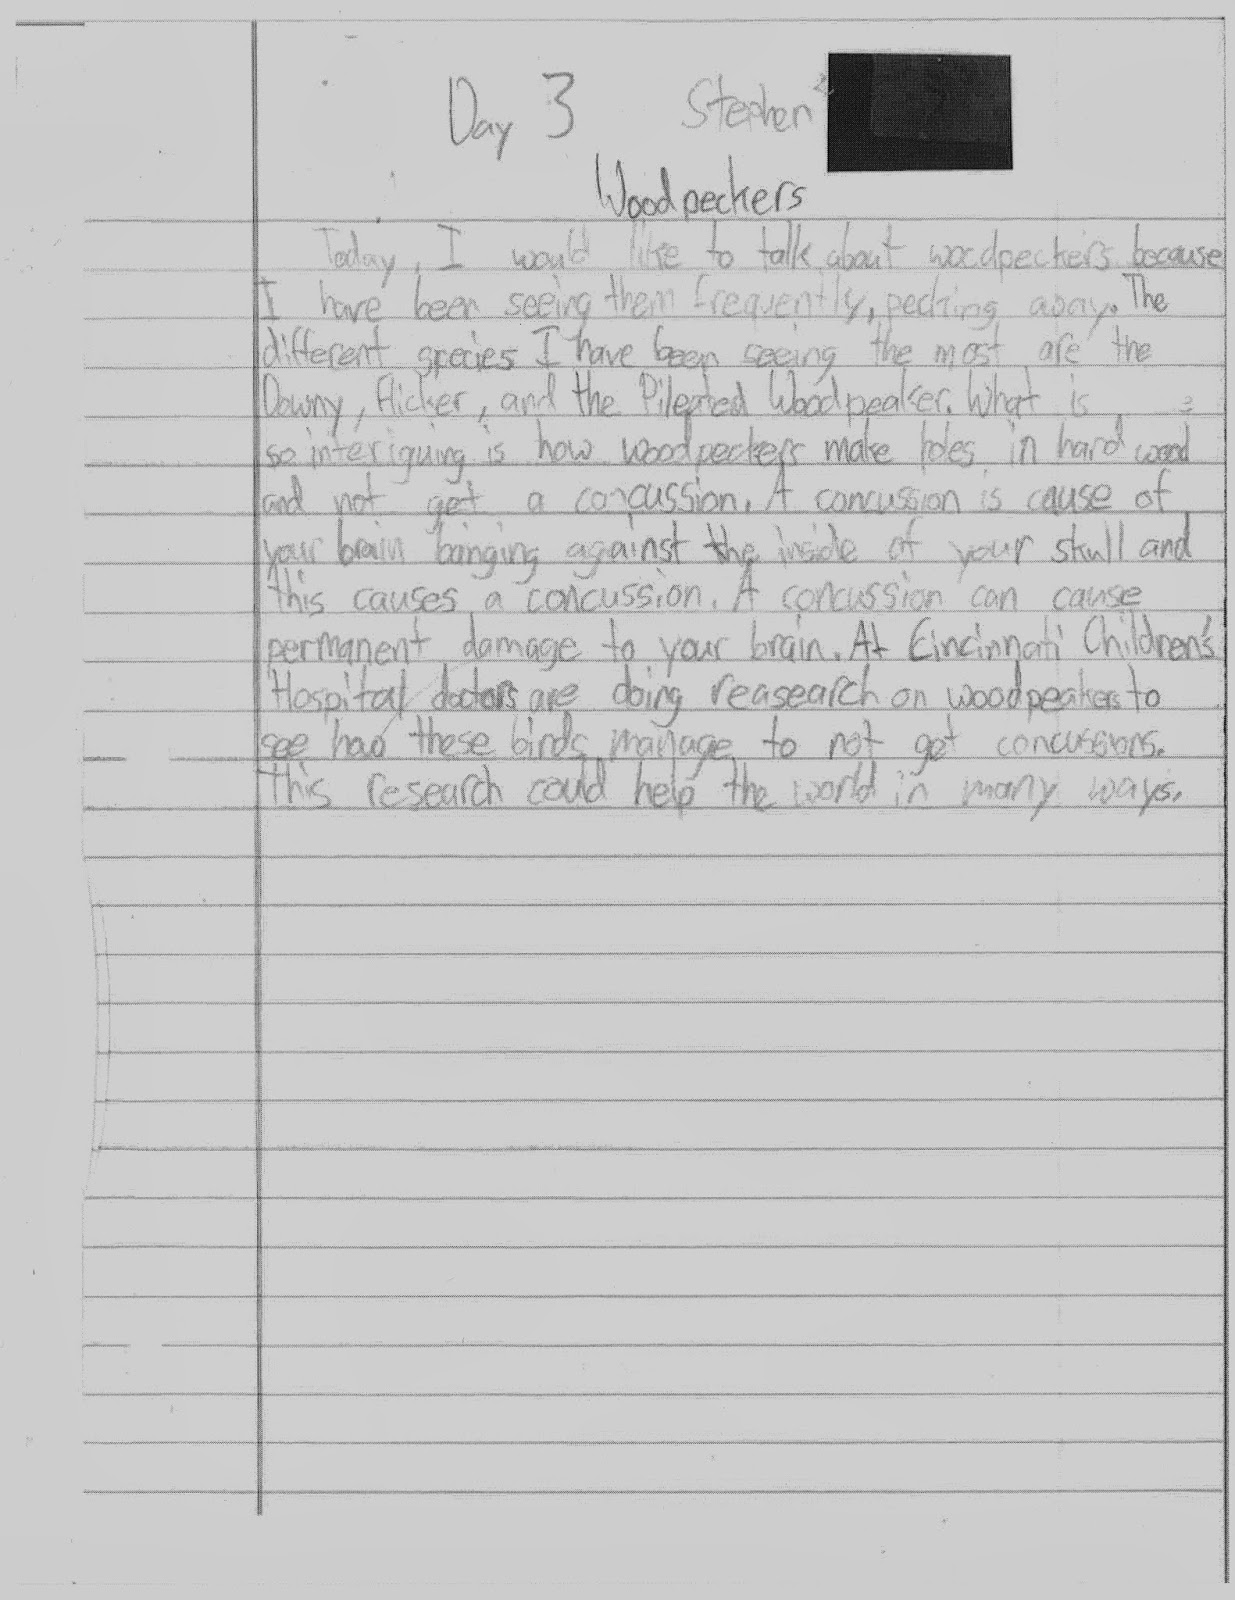 Day 3 Stephen
Woodpeckers
Today, I would like to talk about woodpeckers because
I have been seeing them frequently, pecking away. The
different species I have been seeing the most are the
Downy, Flicker, and the Pileated Woodpeaker. What is
so interiguing is how woodpeckers make holes in hard wood
and not get a concussion. A concussion is cause of
your brain banging against the inside of your skull and
this causes a concussion. A concussion can cause
permanent damage to your brain. At Cincinnati Children's
Hospital doctors are doing reasearch on woodpeakers to
see how these birds manage to not get concussions.
This research could help the world in many ways.